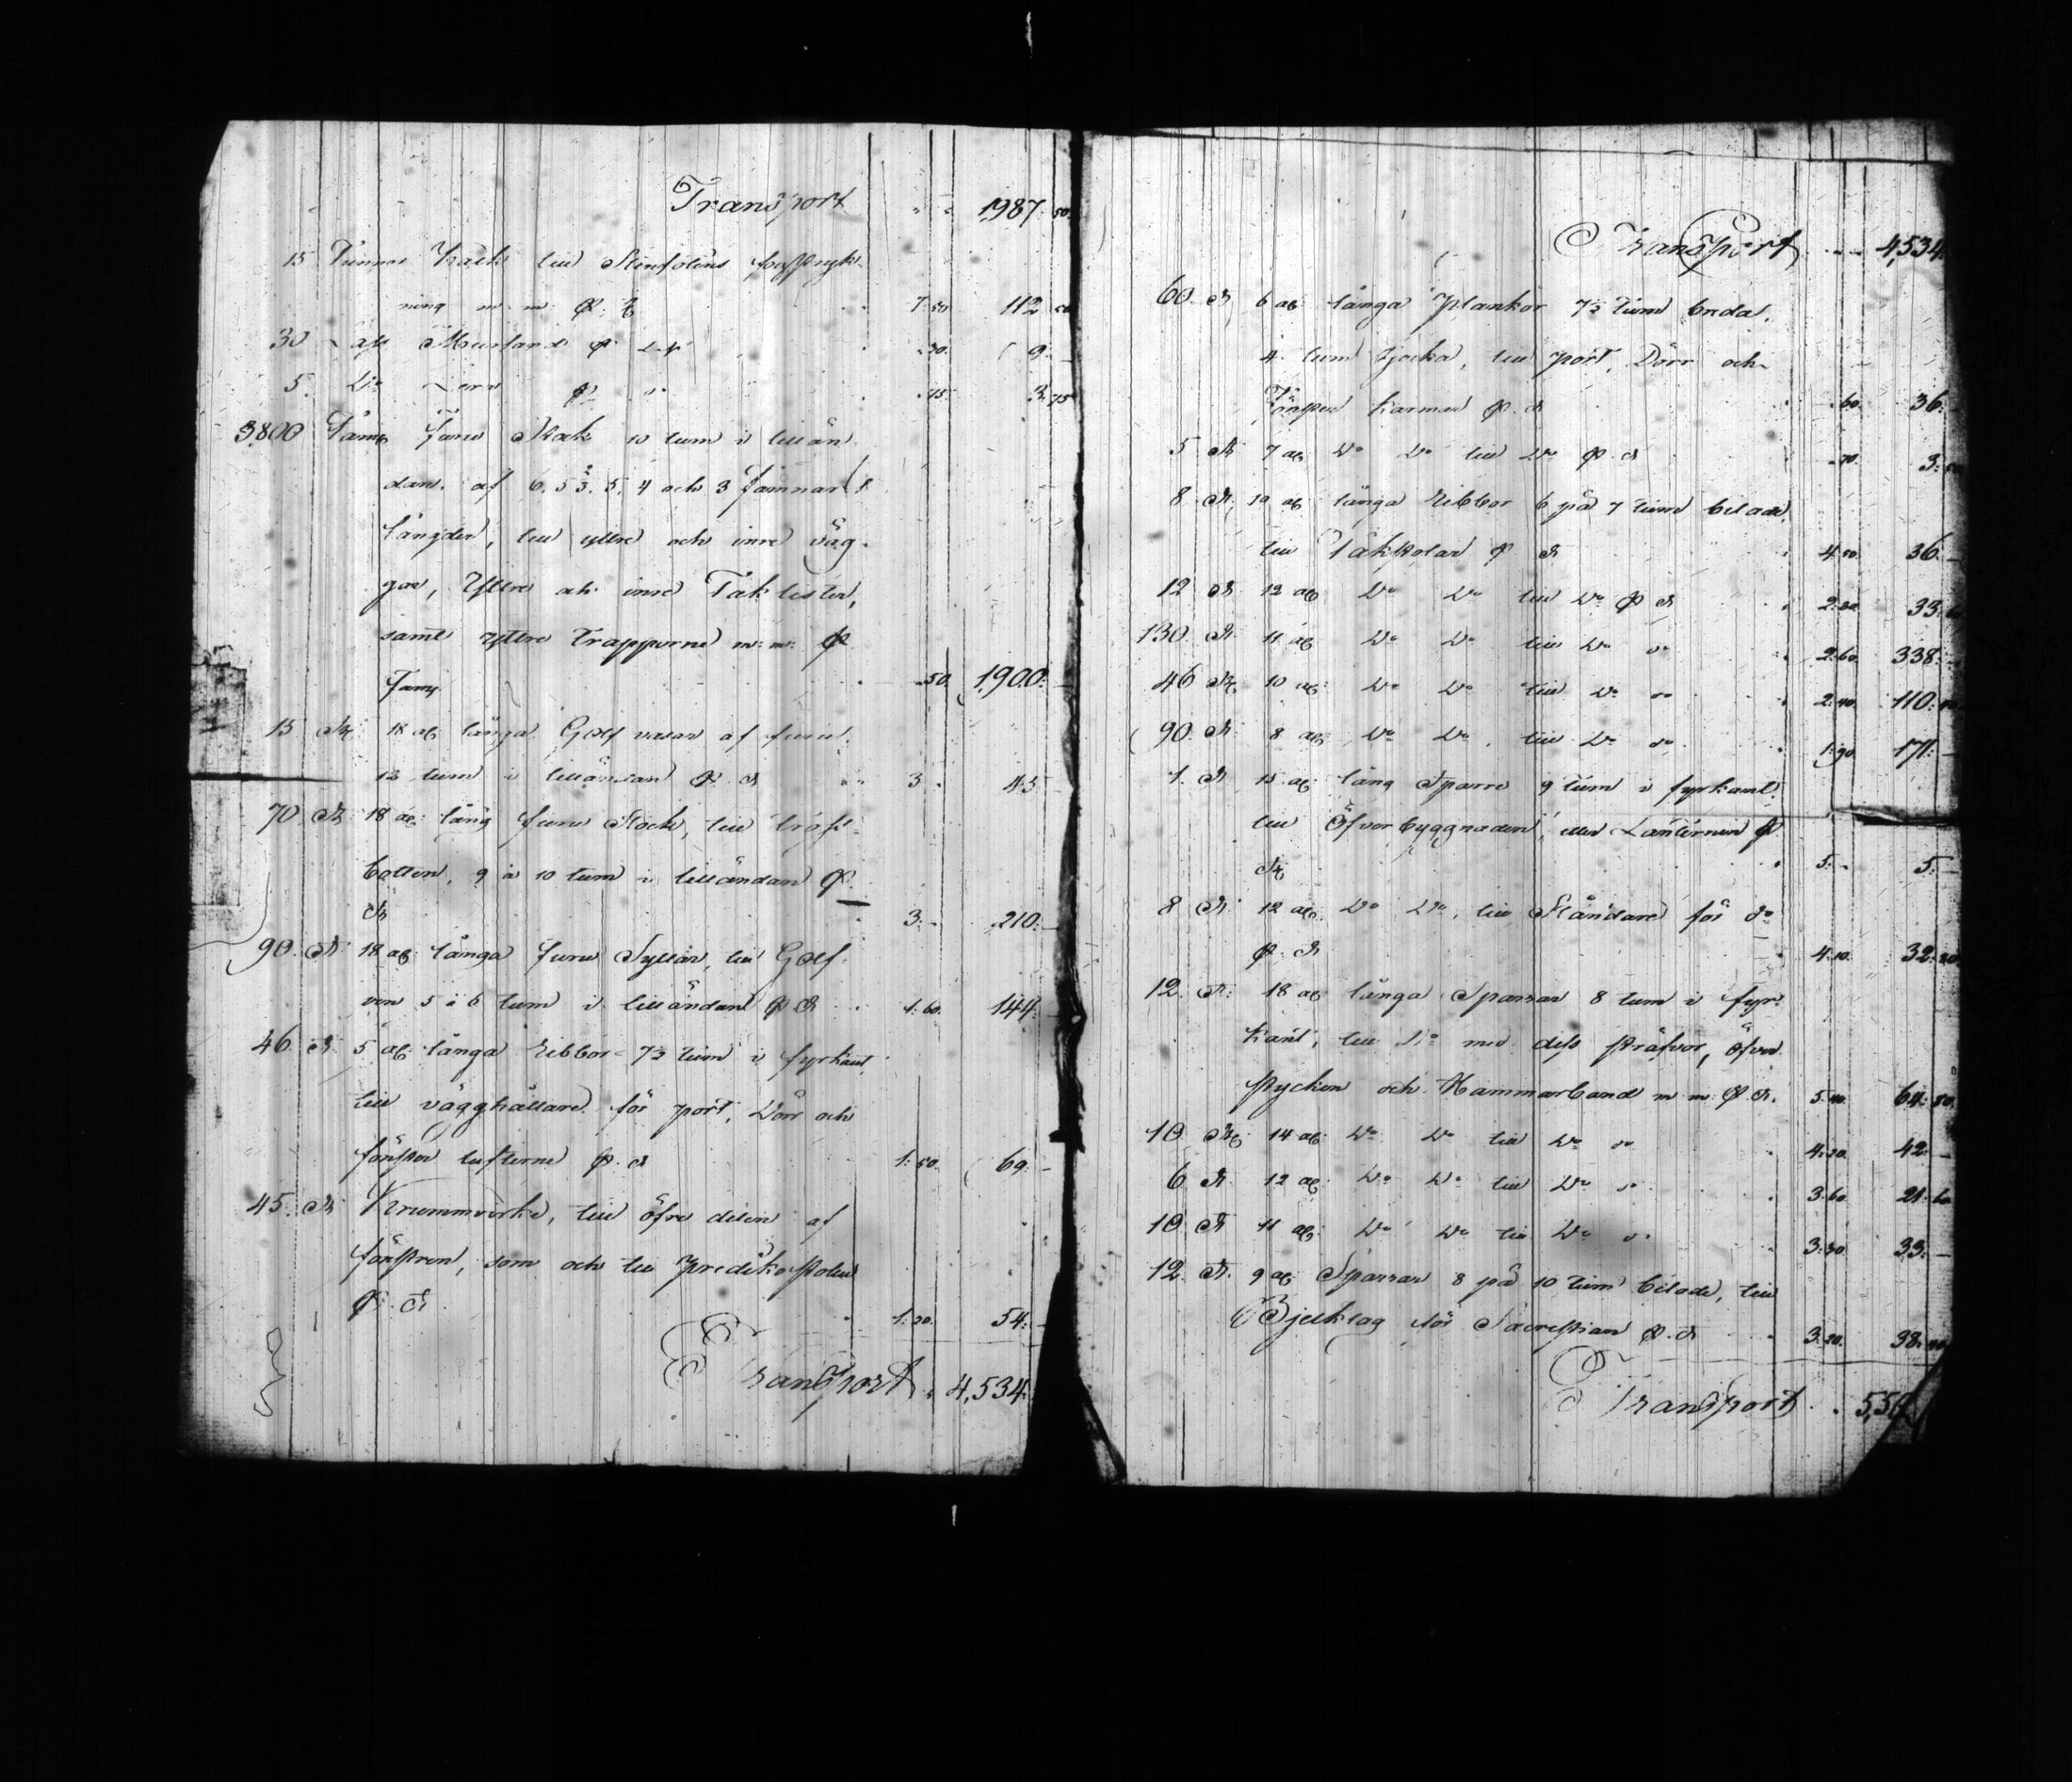 Transport " " 1987: 50
15 Tunnor Kalk till Stenfotens forstryk-
ning m: m: 7: 50 112: 50
30 Lass Mursand " 30. 9: -
5. Do Lera " 75. 3: 75
3,800 Famn Furu Stock 10 tum i lillän-
dan. af 6, 5 3, 5, 4 och 3 famnars
längder, till yttre och inre väg-
gar, Yttre och inre Taklister,
samt yttre Trapporne m: m:
Famn " 50 1,900: -
15 St 18 al: långa Golf vasar af furu,
12 tum i lilländan 3 - 45 -
70 St 18 al: lång furu Stock, till
botten, 9 à 10 tum i lilländan
St 3: - 210: -
90. St 18 al: långa furu Syllar, till Golf-
ven 5 à 6 tum i lilländan 1: 60. 144: -
46. St 5 al: långa Ribbor 7½ tum i fyrkant,
till vägghållare för port, Dörr och
fönster lufterne 1: 50. 69: -
45. St Krummvirke, till öfre delen af
fönstren, som och till Predikostolen
St 1: 20. 54: -
Transport " 4,534:
Transport " " 4,534:
60. St 6 al: långa Plankor 7½ tum breda,
4 tum tjocka, till port, Dörr och
Fönster Karmar " 60. 36:
5 St 7 al: Do Do till Do " 70. 3: 50
8 St 19 al: långa Ribbor 6 på 7 tum bilade,
till Takstolar 4: 50. 36: -
12 St 12 al: Do Do till Do 2: 80. 33: 6
130. St 11 al: Do Do till Do do 2: 60. 338: -
46 St 10 al: Do Do till Do do 2: 40. 110: 40
90. St 8 al: Do Do till Do do 1: 90. 171: -
1. St 15 al: lång Sparre 9 tum i fyrkant,
till Öfverbyggnaden, eller Lanternen
St 5: - 5: -
8 St 12 al: Do Do, till Ståndare för do
St 4: 10. 32: 80
12 St 18 al: långa Sparrar 8 tum i fyr-
kant, till Do med dess sträfvor, öfver
stycken och Hammarband m m 5: 40. 64: 80.
10 St 14 al: Do Do till Do do 4: 20. 42: -
6 St 12 al: Do Do till Do do 3: 60 21: 60
10 St 11 al: Do Do till Do do 3: 30. 33: -
12. St 9 al: Sparrar 8 på 10 tum bilade, till
Bjelklag för Sacrestian 3: 20. 38: 40
Transport " 5,5